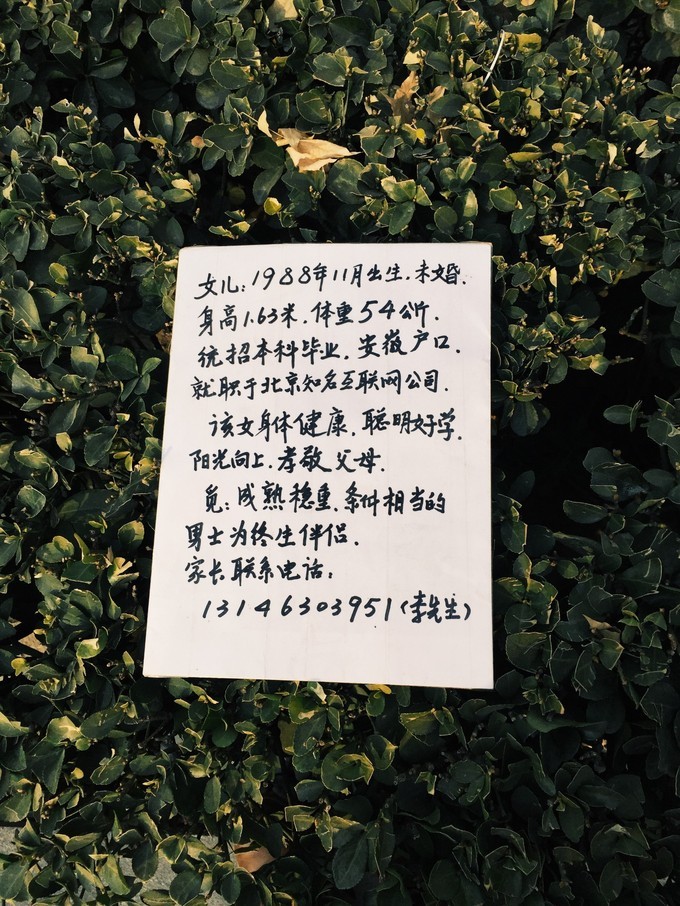 女儿：1988年11月出生，未婚，
身高1.63米，体重54公斤，
统招本科毕业，安徽户口，
就职于北京知名互联网公司．
该女身体健康，聪明好学，
阳光向上，孝敬父母．
觅：成熟稳重，条件相当的
男士为终生伴侣．
家长联系电话：
13146303951（李先生）